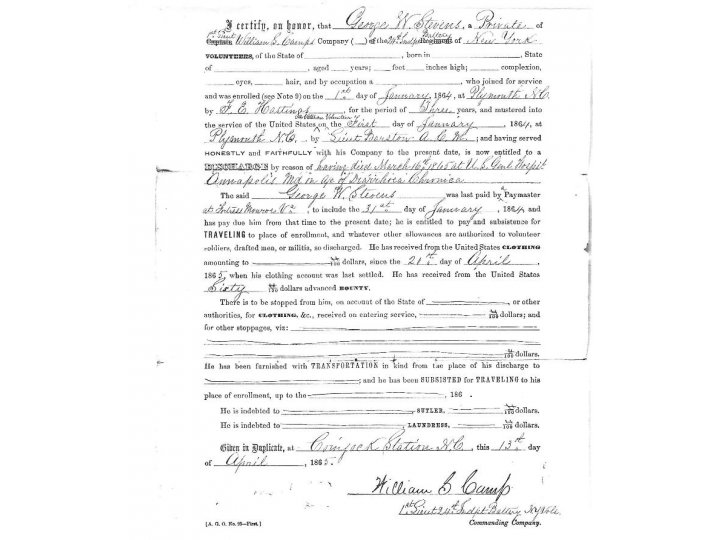 I certify, on honor, that George W. Stevens, a Private of
1st Lieut
Captain William C. Camps Company ( ) of the 24th Indpt Battery Regiment of New York
VOLUNTEERS, of the State of , born in , State
of , aged years; foot inches high; complexion,
eyes, hair, and by occupation a , who joined for service
and was enrolled (see Note 9) on the 1st day of January, 1864, at Plymouth N.C.
by F. E. Hastings, for the period of Three years, and mustered into
the service of the United States, on the First day of January, 1864, at
Plymouth N.C., by Lieut Barston A.C.M; and having served
HONESTLY and FAITHFULLY with his Company to the present date, is now entitled to a
DISCHARGE by reason of having died March 16th 1865 at U.S. Genl Hospt
Annapolis Md Diarrhoea
The said George W. Stevens was last paid by Paymaster
at Fortress Monroe Va, to include the 31st day of January, 1864, and
has pay due him from that time to the present date; he is entitled to pay and subsistence for
TRAVELING to place of enrollment, and whatever other allowances are authorized to volunteer
soldiers, drafted men, or militia, so discharged. He has received from the United States CLOTHING
amounting to /100 dollars, since the 20th day of April,
1865, when his clothing account was last settled. He has received from the United States
Sixty /100 dollars advanced BOUNTY.
There is to be stopped from him, on account of the State of , or other
authorities, for CLOTHING, &c., received on entering service, /100 dollars; and
for other stoppages, viz:
/100 dollars.
He has been furnished with TRANSPORTATION in kind from the place of his discharge to
; and he has been SUBSISTED for TRAVELING to his
place of enrollment, up to the , 186 .
He is indebted to , SUTLER, /100 dollars.
He is indebted to , LAUNDRESS, /100 dollars.
Given in Duplicate, at Coinjock Station N.C., this 13th day
of April, 1865.
William C Camp
1st Lieut 24th Indpt Battery N.Y. Vols.
[A. G. O. No. 95—First.] Commanding Company.